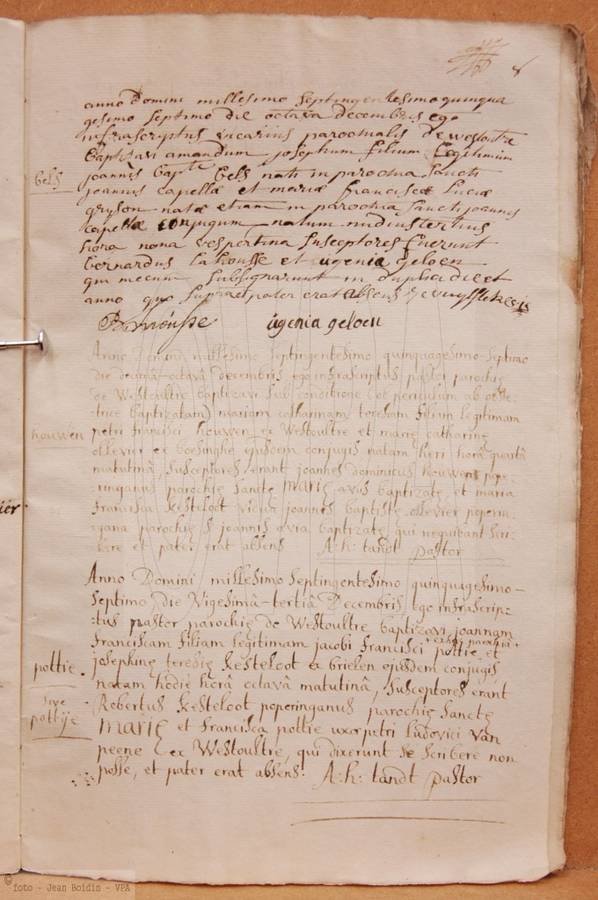 anno domini millesimo septingentesimo quinqua
gesimo septimo die octava decembris ego
infrascriptus vicarius parochialis de westoutre
baptizavi amandum josephum filium legitimum
joannis bapte bels nati in parochia sancti
bels
joannis capellæ et mariæ franciscæ luciæ
gryson natæ etiam in parochia sancti joannis
capellæ conjugum natum nudiustertius
hora nona vespertina susceptores fuerunt
bernardus lahousse et eugenia geloen
qui mecum subsignarunt in duplo die et
anno quo supra et pater erat absens
ugenia geloen
Anno Domini millesimo septingentesimo quinquagesimo-septimo
die decima-octavâ decembris ego infrascriptus pastor parochię
de Westoultre baptizavi sub conditione (ob periculum ab obste-
trice baptizatam) mariam catharinam toresam filiam legitimam
houwen
petri francisci houwen ex Westoultre et marię catharinę
ollevier ex boesinghe ejusdem conjugis natam heri horâ quartâ
matutinâ, susceptores erant joannes dominicus houwen pope-
ringanus parochię sanctę marię avus baptizatę et maria
francisca kesteloot vidua joannis baptistę ollevier poperin-
gana parochię s joannis avia baptizatę qui nequibant scri-
bere et pater erat absens A: h: tandt pastor
Anno Domini millesimo septingentesimo quinquagesimo-
septimo die vigesimâ-tertiâ Decembris ego infrascrip-
:tus pastor parochię de Westoultre baptizavi joannam
franciscam filiam legitimam jacobi francisci pottie et
pottie.
josephinę teresię kesteloot ex brielen ejusdem conjugis
natam hodie horâ octavâ matutinâ, susceptores erant
sive
pottije
Robertus kesteloot poperinganus parochię sanctę
marię et francisca pottie uxor petri ludovici van
peene ex Westoultre, qui dixerunt se scribere non
posse, et pater erat absens: A: h: tandt pastor
© foto - Jean Boidin - VPA